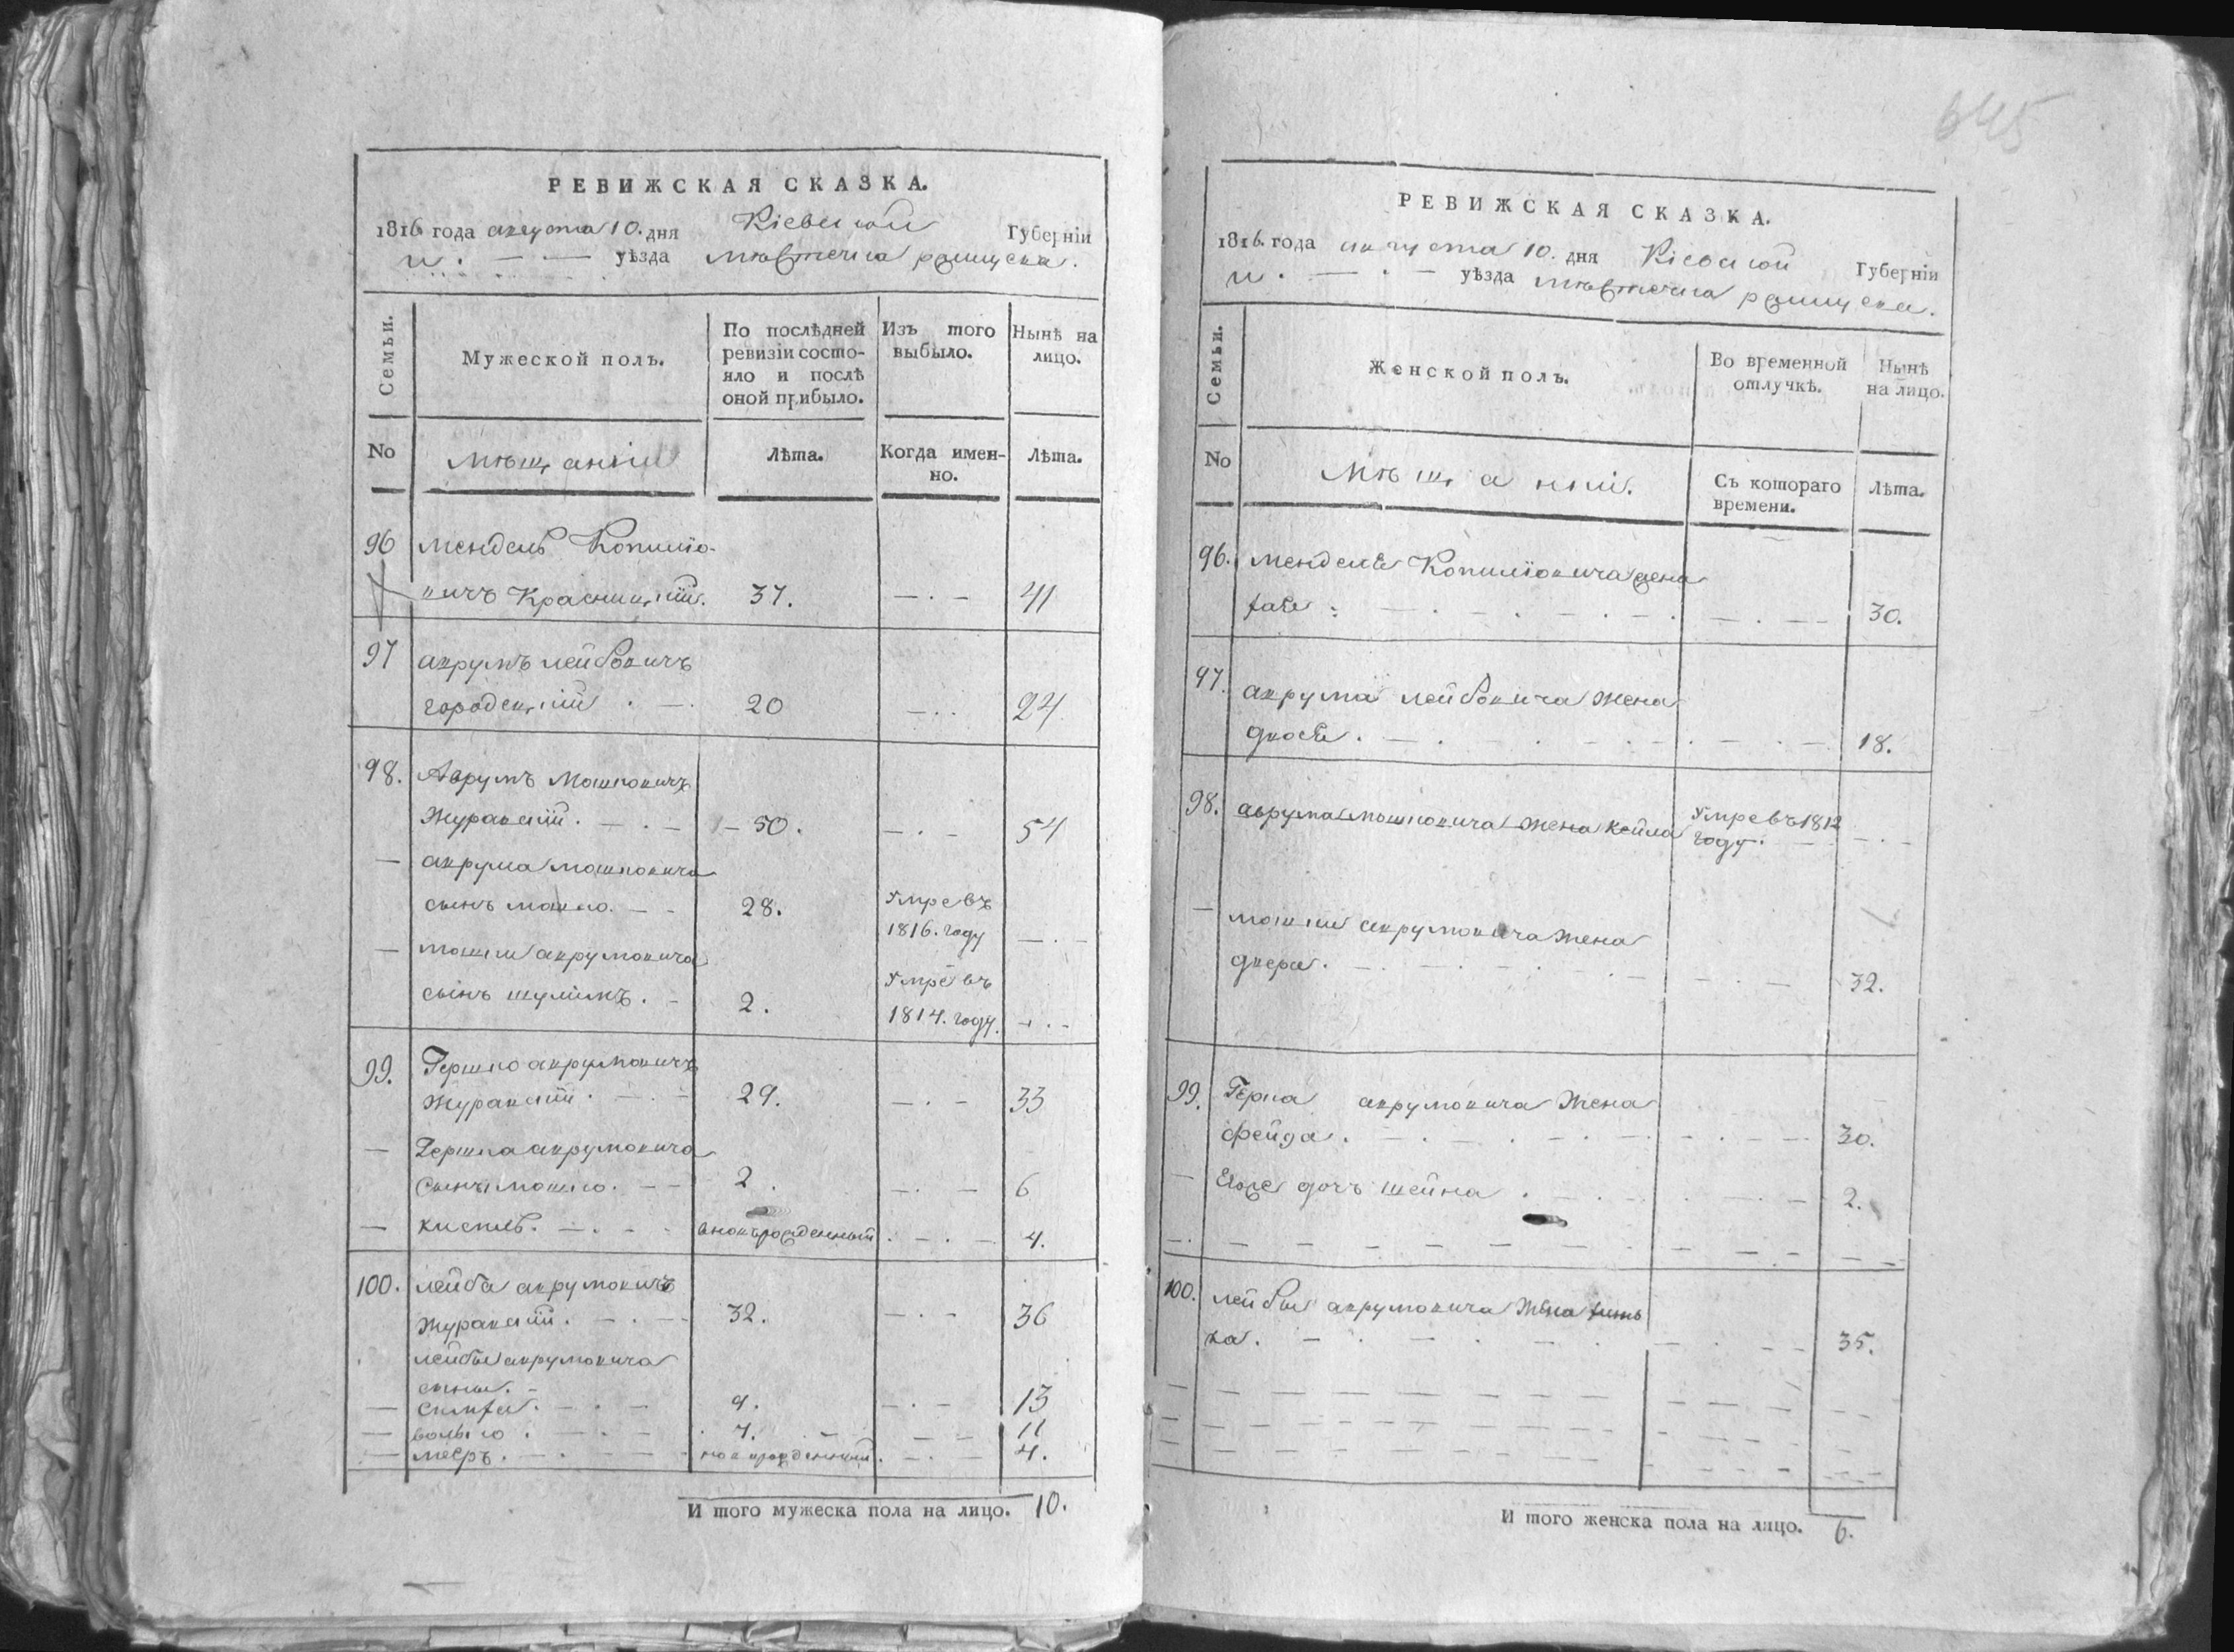 645
РЕВИЖСКАЯ СКАЗКА.
1816 года августа 10. дня Кіевской Губерніи
уѣзда мѣстечка
Семьи.
Мужеской полъ.
По послѣдней ревизіи состо-
яло и послѣ
оной прибыло.
Изъ того выбыло.
Нынѣ на лицо.
No
Мѣщане
Лѣта.
Когда имен-
но.
Лѣта.
96 мендель
вичъ Красницкій. 37. 41
97 аврумъ лейбовичъ
городецкій 20 24
98. Аврумъ Мошковичъ
Журавскій. 50. 54
аврума мошковича
сынъ мошко. 28. Умре въ
1816. году
мошки аврумовича
сынъ шулимъ. 2. Умре въ
1814. году.
99. Гершко аврумовичъ
Журавскій. 29. 33
Гершка аврумовича
Сынъ мошко. 2. 6
кисиль. вновьрожденный 4.
100. лейба аврумовичъ
Журавскій. 32. 36
лейбы аврумовича
сыны.
Симха. 9. 13
волько. 7. 11
меръ. 4.
И того мужеска пола на лицо. 10.
РЕВИЖСКАЯ СКАЗКА.
1816. года августа 10. дня Кіевской Губерніи
уѣзда мѣстечка
Семьи.
Женской полъ.
Во временной
отлучкѣ.
Нынѣ
на лицо.
No
Съ котораго
времени.
Лѣта.
96. менделя жена
30.
97. аврума лейбовича жена
двося. 18.
98. аврума мошковича жена кейла Умре въ 1812
году.
мошки аврумовича жена
двера. 32.
99. Герша аврумовича жена
фейга. 30.
Его дочь шейна. 2.
100. лейбы аврумовича жена
ка. 35.
И того женска пола на лицо. 6.